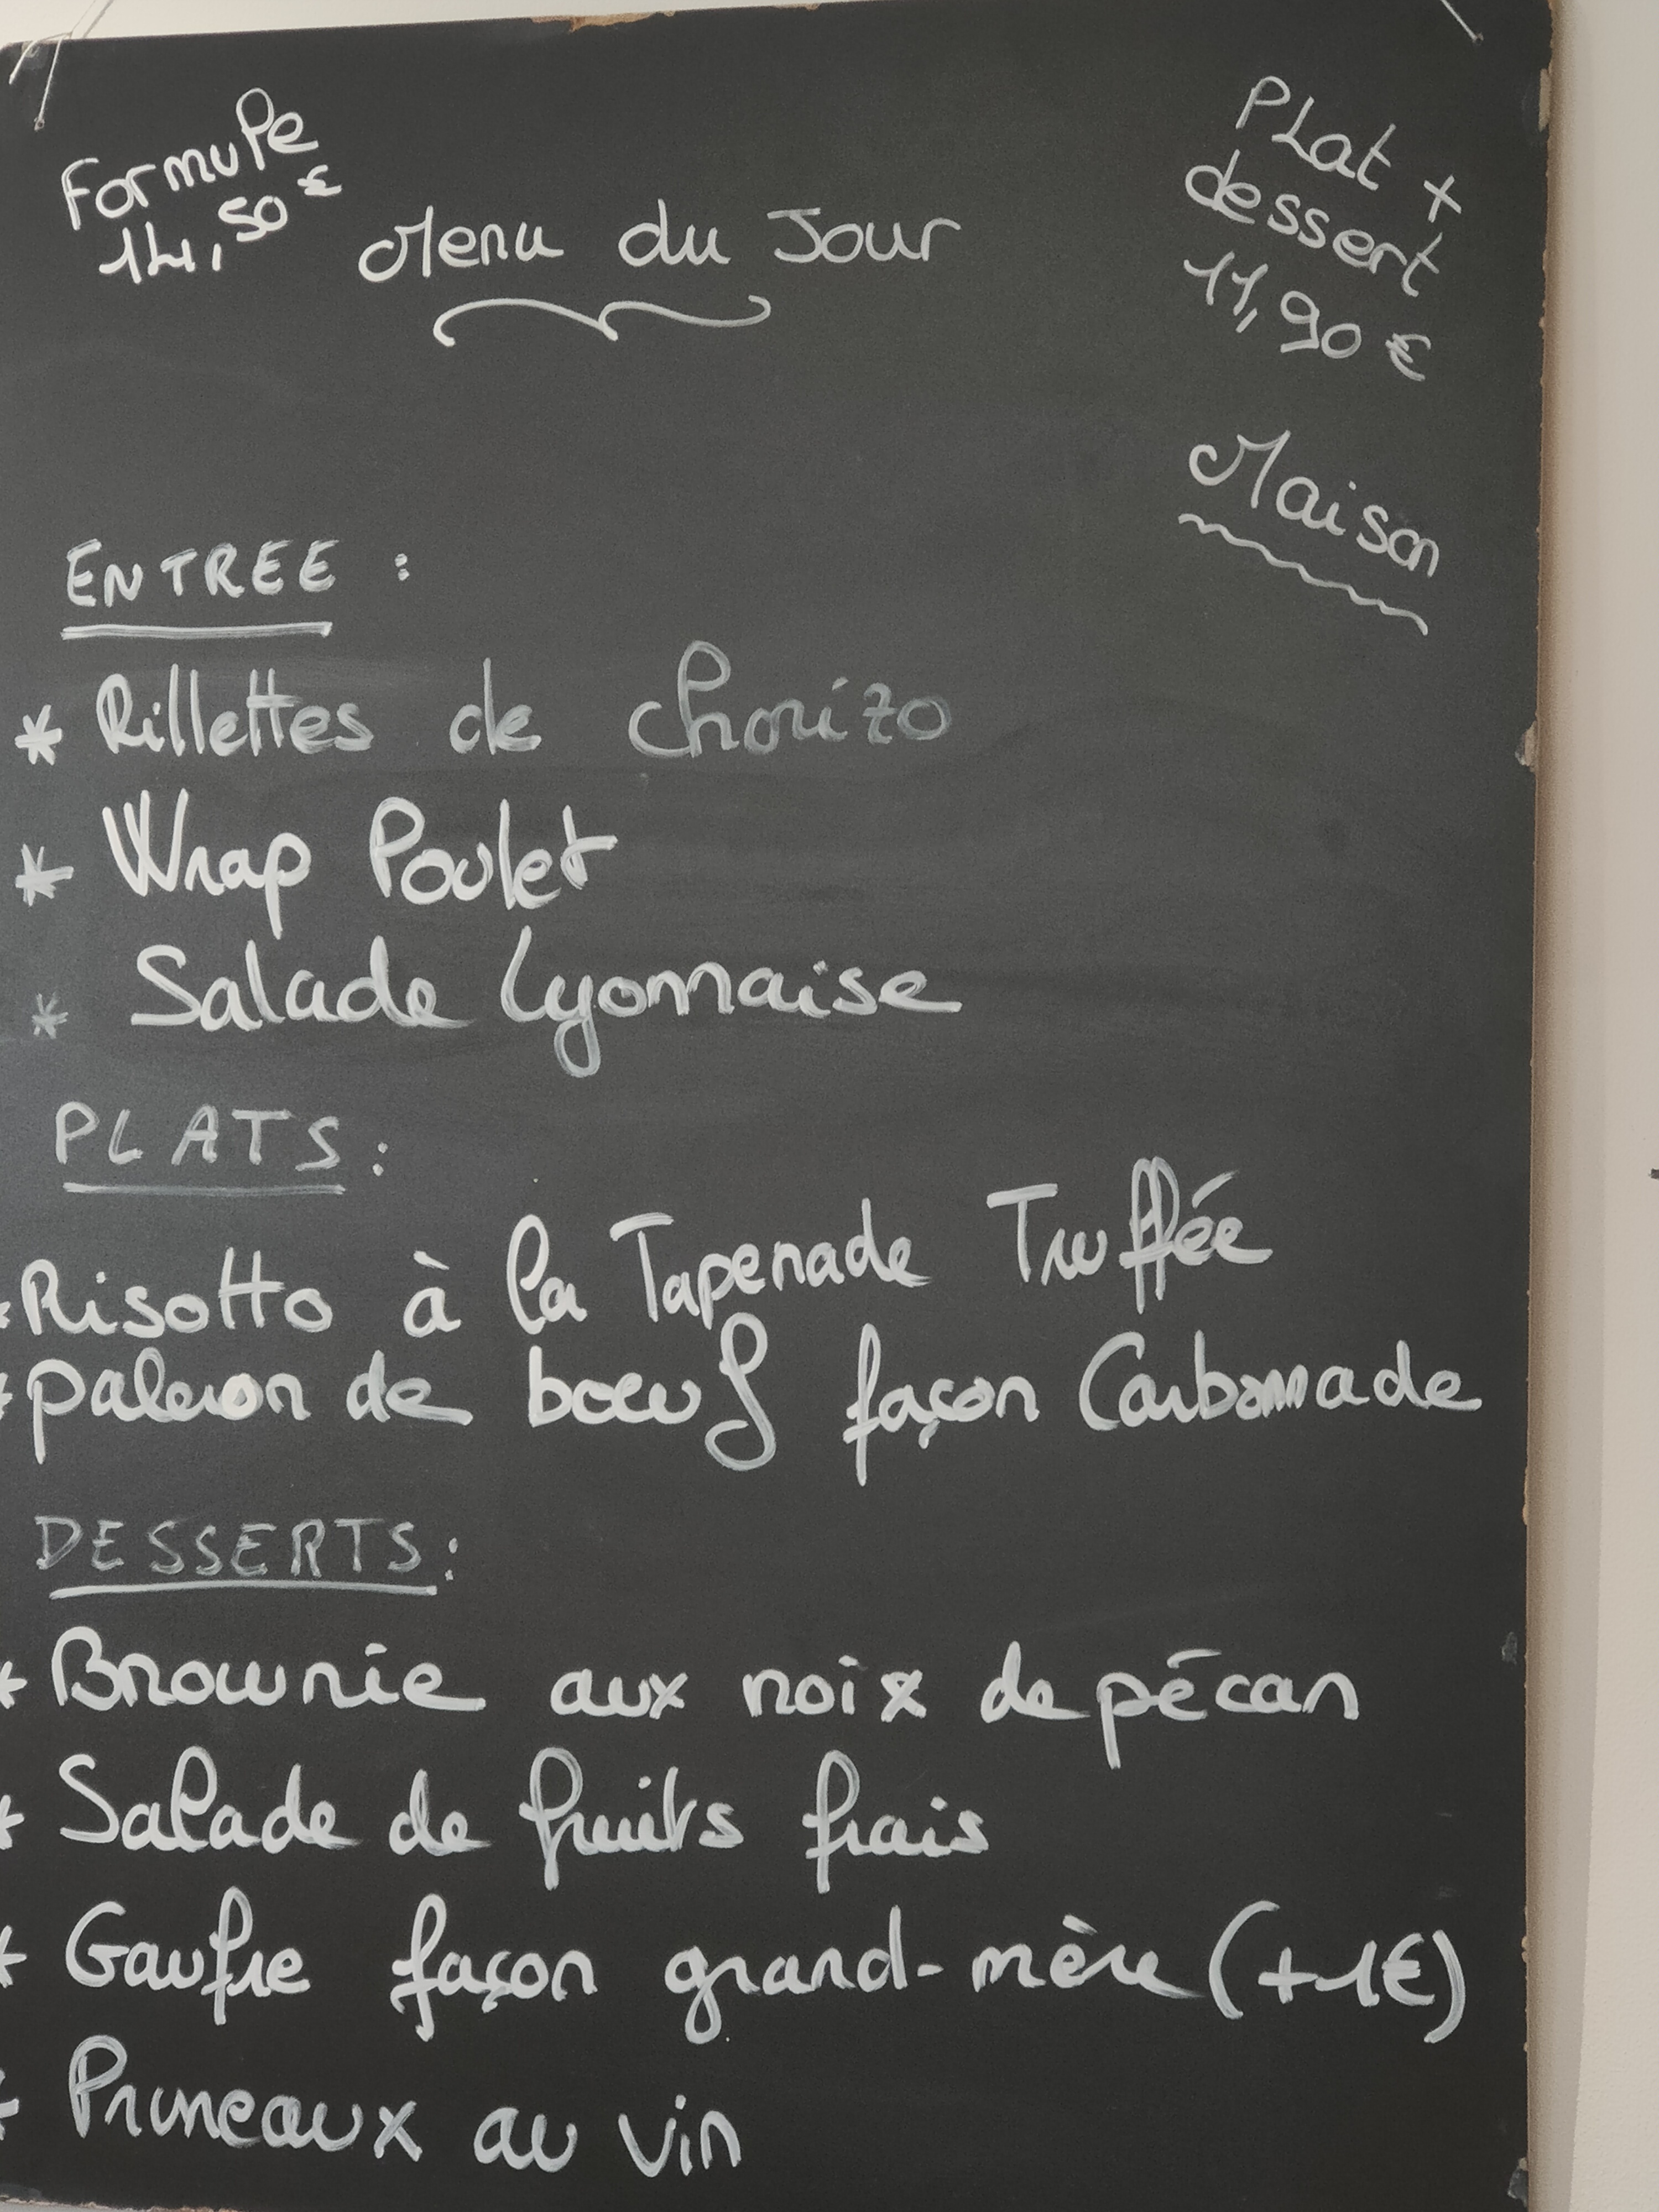 Formule
14,50 €
Menu du Jour
PLat +
dessert
11,90 €
Maison
ENTREE :
* Rillettes de chorizo
* Wrap Poulet
* Salade Lyonnaise
PLATS :
* Risotto à la Tapenade Truffée
* paleron de boeuf façon Carbonnade
DESSERTS :
* Brownie aux noix de pécan
* Salade de fruits frais
* Gaufre façon grand-mère (+1€)
* Pruneaux au vin